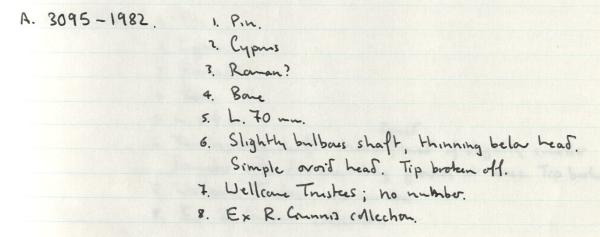 A. 3095-1982. 1. Pin.
2. Cyprus
3. Roman?
4. Bone
5. L. 70 mm.
6. Slightly bulbous shaft, thinning below head.
Simple ovoid head. Tip broken off.
7. Wellcome Trustees; no number.
8. Ex R. Gunnis collection.